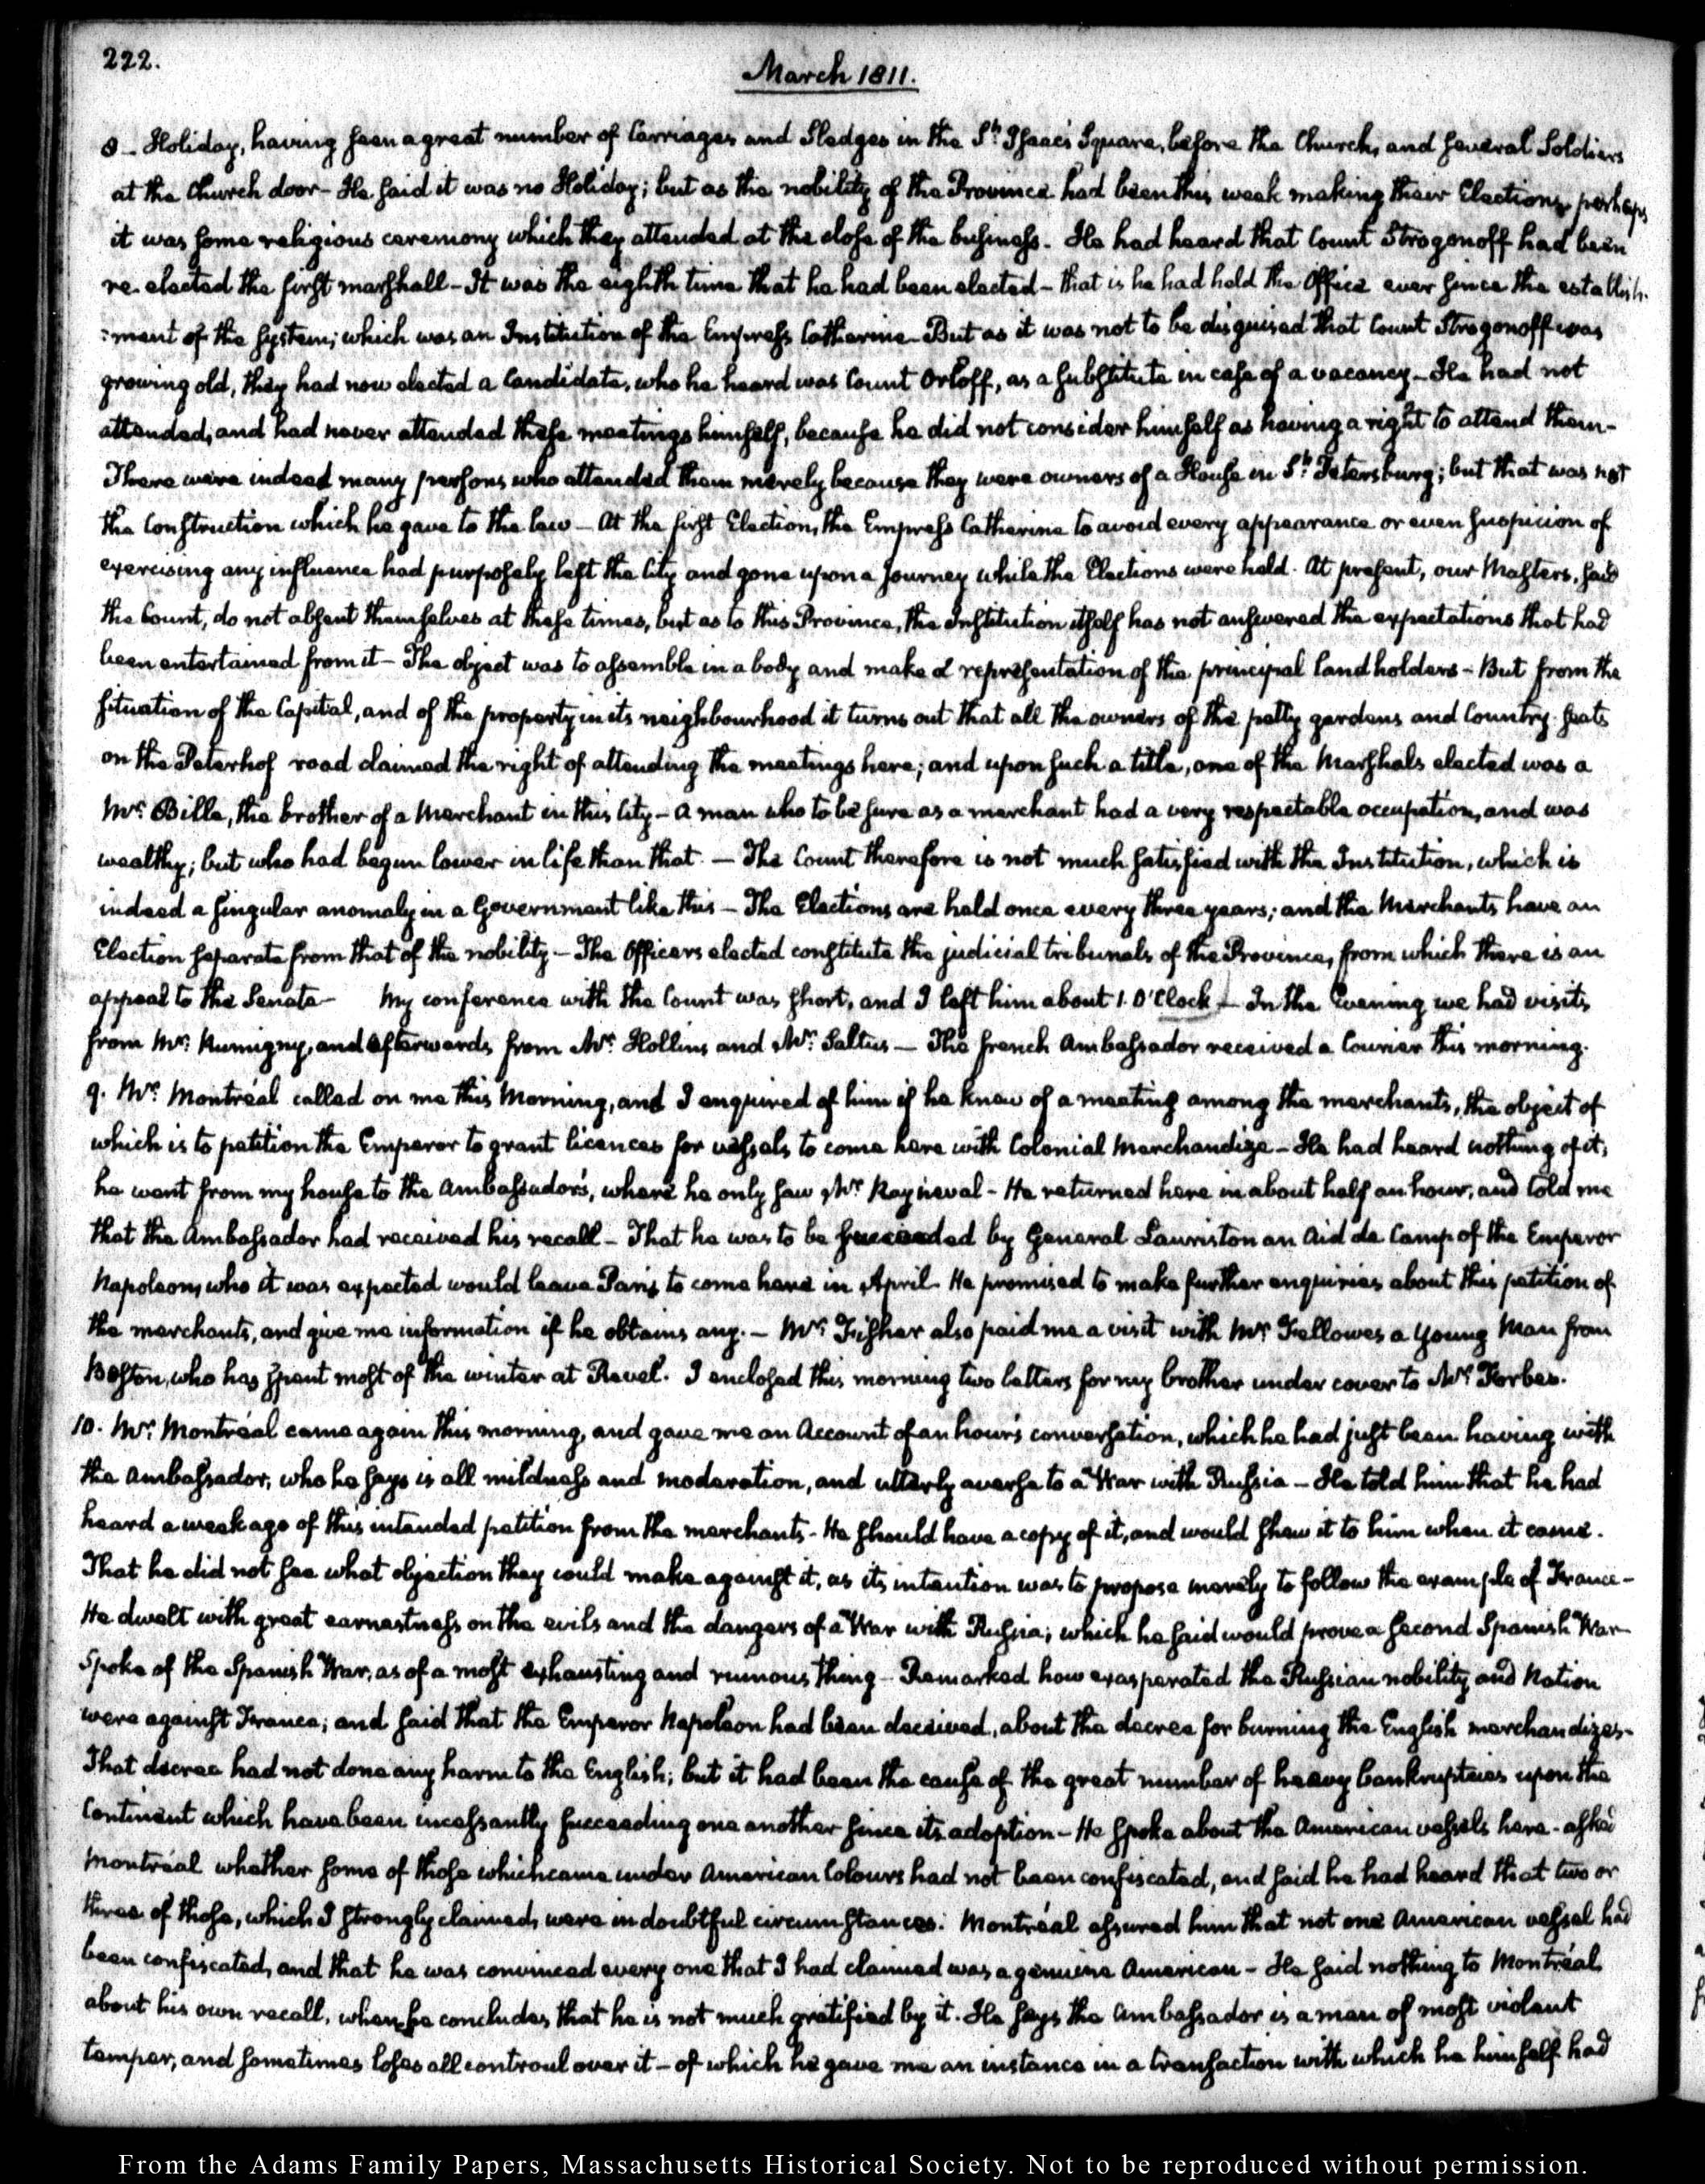 222.
March 1811.
8 - Holiday, having seen a great number of Carriages and Sledges in the St. Isaac's Square, before the Church, and several Soldiers
at the Church door - He said it was no Holiday; but as the nobility of the Province had been this week making their Elections, perhaps
it was some religious ceremony which they attended at the close of the business. He had heard that Count Strogonoff had been
re-elected the first marshall - It was the eighth time that he had been elected - that is he had held the Office ever since the establish-
:ment of the System; which was an Institution of the Empress Catherine - But as it was not to be disguised that Count Strogonoff was
growing old, they had now elected a Candidate, who he heard was Count Orloff, as a substitute in case of a vacancy - He had not
attended, and had never attended these meetings himself, because he did not consider himself as having a right to attend them -
There were indeed many persons who attended them merely because they were owners of a House in St. Petersburg; but that was not
the Construction which he gave to the law - At the first Election, the Empress Catherine to avoid every appearance or even suspicion of
exercising any influence had purposely left the City and gone upon a journey while the Elections were held. At present, our Masters, said
the Count, do not absent themselves at these times, but as to this Province, the Institution itself has not answered the expectations that had
been entertained from it - The object was to assemble in a body and make a representation of the principal landholders - But from the
situation of the Capital, and of the property in its neighbourhood it turns out that all the owners of the petty gardens and Country-seats
on the Peterhof road claimed the right of attending the meetings here; and upon such a title, one of the Marshals elected was a
Mr. Bille, the brother of a Merchant in this City - a man who to be sure as a merchant had a very respectable occupation, and was
wealthy; but who had begun lower in life than that. - The Count therefore is not much satisfied with the Institution, which is
indeed a singular anomaly in a Government like this - The Elections are held once every three years; and the Merchants have an
Election separate from that of the nobility - The Officers elected constitute the judicial tribunals of the Province, from which there is an
appeal to the Senate - My conference with the Count was short, and I left him about 1. O'Clock - In the Evening we had visits
from Mr. Rumigny, and afterwards from Mr. Hollins and Mr. Saltus - The french Ambassador received a Courier this morning.
9. Mr. Montréal called on me this Morning, and I enquired of him if he knew of a meeting among the merchants, the object of
which is to petition the Emperor to grant licences for vessels to come here with Colonial Merchandize - He had heard nothing of it;
he went from my house to the Ambassador's, where he only saw Mr. Rayneval - He returned here in about half an hour, and told me
that the Ambassador had received his recall - That he was to be succeeded by General Lauriston an Aid de Camp of the Emperor
Napoleon, who it was expected would leave Paris to come here in April. He promised to make further enquiries about this petition of
the merchants, and give me information if he obtains any. - Mr. Fisher also paid me a visit with Mr. Fellowes a Young Man from
Boston, who has spent most of the winter at Revel. I enclosed this morning two letters for my brother under cover to Mr. Forbes.
10. Mr. Montréal came again this morning, and gave me an Account of an hour's conversation, which he had just been having with
the Ambassador, who he says is all mildness and moderation, and utterly averse to a War with Russia - He told him that he had
heard a week ago of this intended petition from the merchants - He should have a copy of it, and would shew it to him when it came.
That he did not see what objection they could make against it, as its intention was to propose merely to follow the example of France -
He dwelt with great earnestness on the evils and the dangers of a War with Russia; which he said would prove a second Spanish War -
Spoke of the Spanish War, as of a most exhausting and ruinous thing - Remarked how exasperated the Russian nobility and Nation
were against France; and said that the Emperor Napoleon had been deceived, about the decree for burning the English merchandizes -
That decree had not done any harm to the English; but it had been the cause of the great number of heavy bankruptcies upon the
Continent which have been incessantly succeeding one another since its adoption - He spoke about the American vessels here - asked
Montréal whether some of those which came under American Colours had not been confiscated, and said he had heard that two or
three of those, which I strongly claimed, were in doubtful circumstances. Montréal assured him that not one American vessel had
been confiscated, and that he was convinced every one that I had claimed was a genuine American - He said nothing to Montréal
about his own recall, whence he concludes that he is not much gratified by it. He says the Ambassador is a man of most violent
temper, and sometimes loses all controul over it - of which he gave me an instance in a transaction with which he himself had
From the Adams Family Papers, Massachusetts Historical Society. Not to be reproduced without permission.